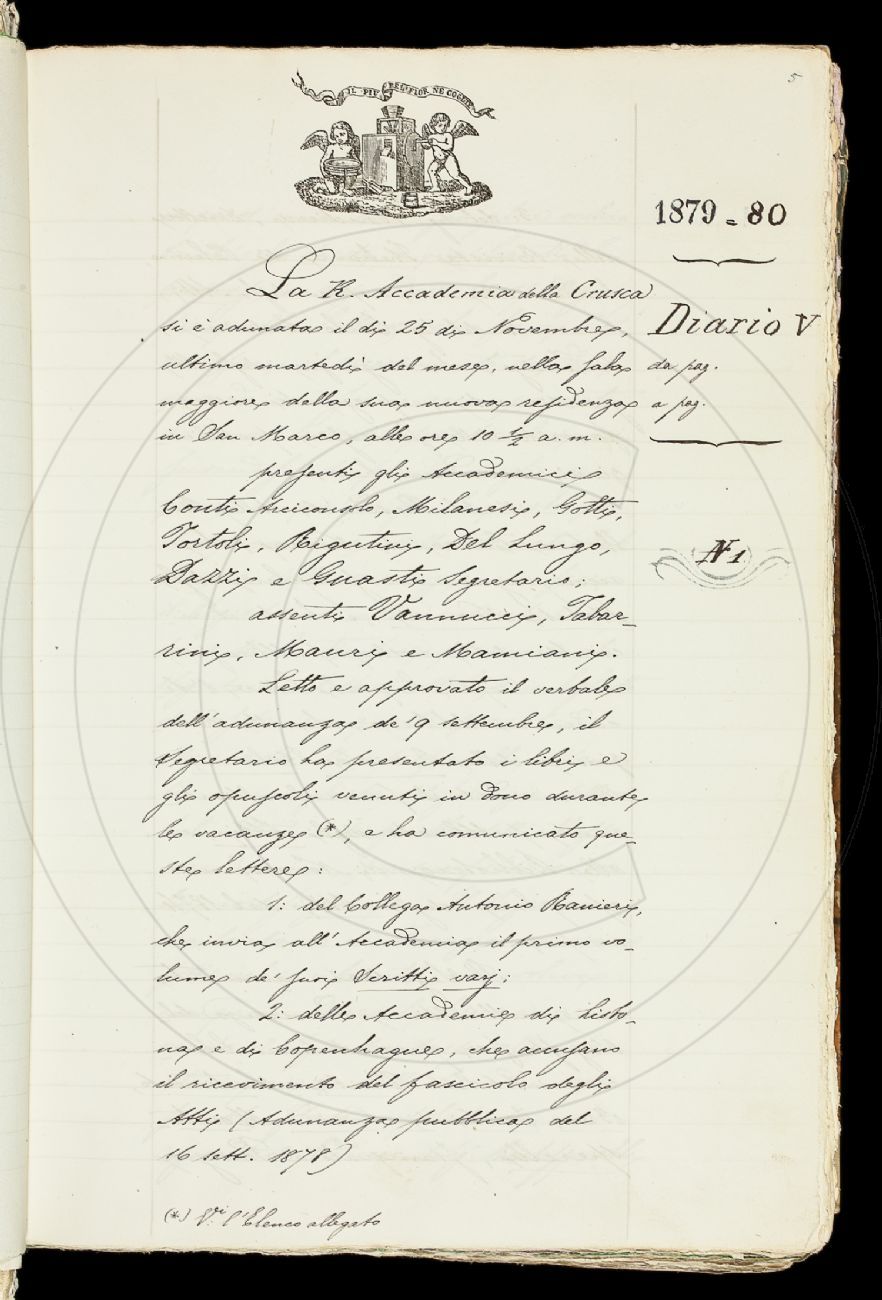 5
IL PIÙ BEL FIOR NE COGLIE
1879=80
La R. Accademia della Crusca
si è adunata il dì 25 di Novembre,
Diario V
ultimo martedì del mese, nella sala
da pag.
maggiore della sua nuova residenza
a pag.
in San Marco, alle ore 10 ½ a. m.
presenti gli Accademici
Conti Arciconsolo, Milanesi, Gotti,
Tortoli, Rigutini, Del Lungo,
N 1
Dazzi e Guasti Segretario;
assenti Vannucci, Tabar-
rini, Mauri e Mamiani.
Letto e approvato il verbale
dell'adunanza de' 9 settembre, il
Segretario ha presentato i libri e
gli opuscoli venuti in dono durante
le vacanze (*), e ha comunicato que-
ste lettere:
1: del Collega Antonio Ranieri,
che invia all'Accademia il primo vo-
lume de' suoi Scritti varj;
2: delle Accademie di Lisbo-
na e di Copenhague, che accusano
il ricevimento del fascicolo degli
Atti (Adunanza pubblica del
16 sett. 1878)
(*) V.i l'Elenco allegato